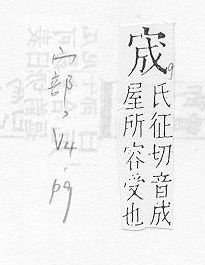 宬
氏征切音成
屋所容受也
宀部, V4, p9